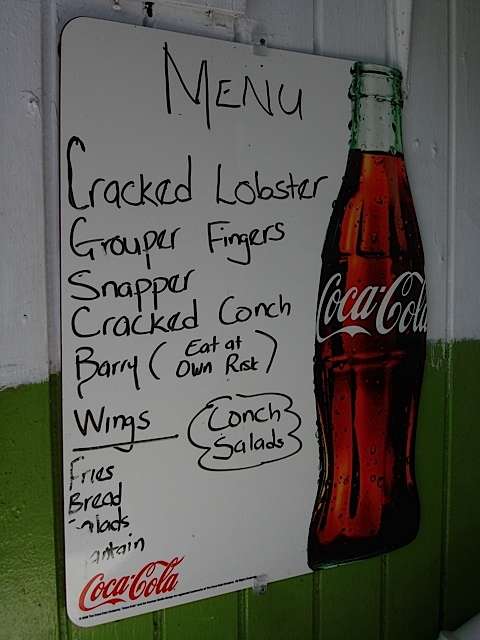 MENU
Cracked Lobster
Grouper Fingers
Snapper
Cracked Conch
Barry (Eat at Own Risk)
Wings
Conch Salads
Fries
Bread
Coca-Cola
Coca-Cola